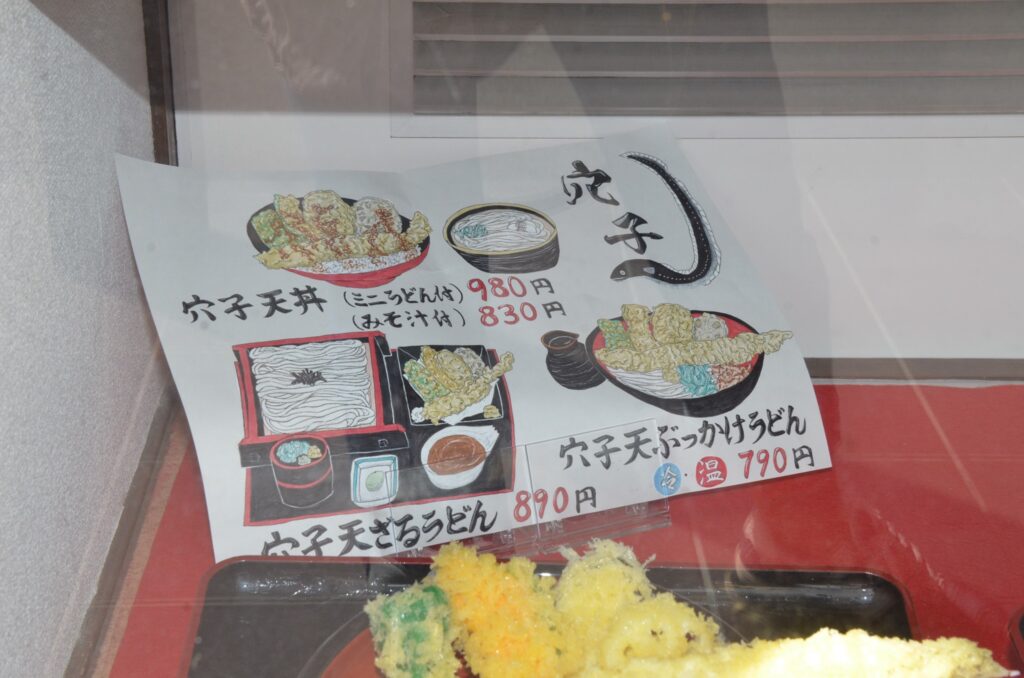 穴子
穴子天丼 (ミニうどん付) 980円
(みそ汁付) 830円
穴子天ぶっかけうどん
冷・温 790円
穴子天ざるうどん 890円